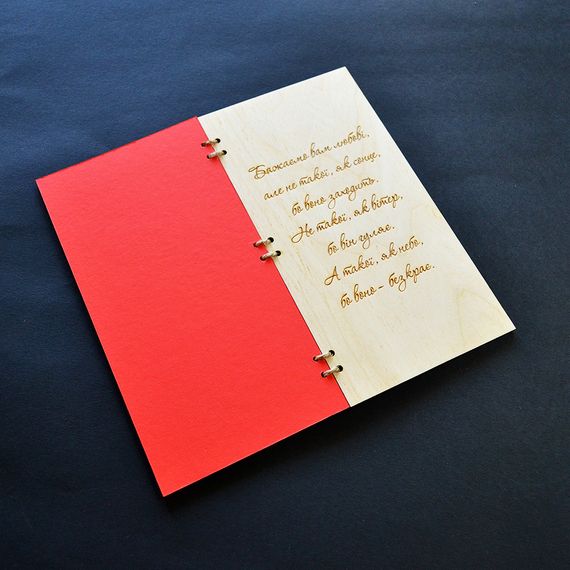 Бажаємо вам любові,
але не такої, як сонце,
бо воно заходить.
Не такої, як вітер,
бо він гуляє.
А такої, як небо,
бо воно - безкрає.